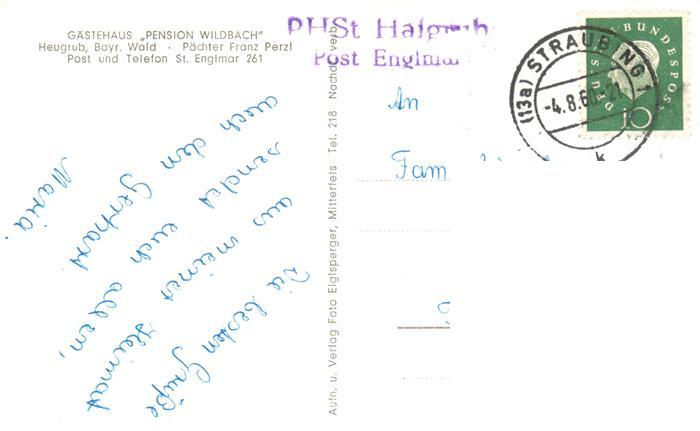 GÄSTEHAUS „PENSION WILDBACH"
Heugrub, Bayr. Wald · Pächter Franz Perzl
Post und Telefon St. Englmar 261
PHSt Haigrub
Post Englmar
(13a) STRAUBING 1
-4.8.60-21
k
DEUTSCHE BUNDESPOST
10
An
Fam
Die besten Grüße
aus meiner Heimat
sendet euch allen,
auch dem Gerhard
Maria.
Aufn. u. Verlag Foto Eiglsperger, Mitterfels Tel. 218 Nachdr. verb.